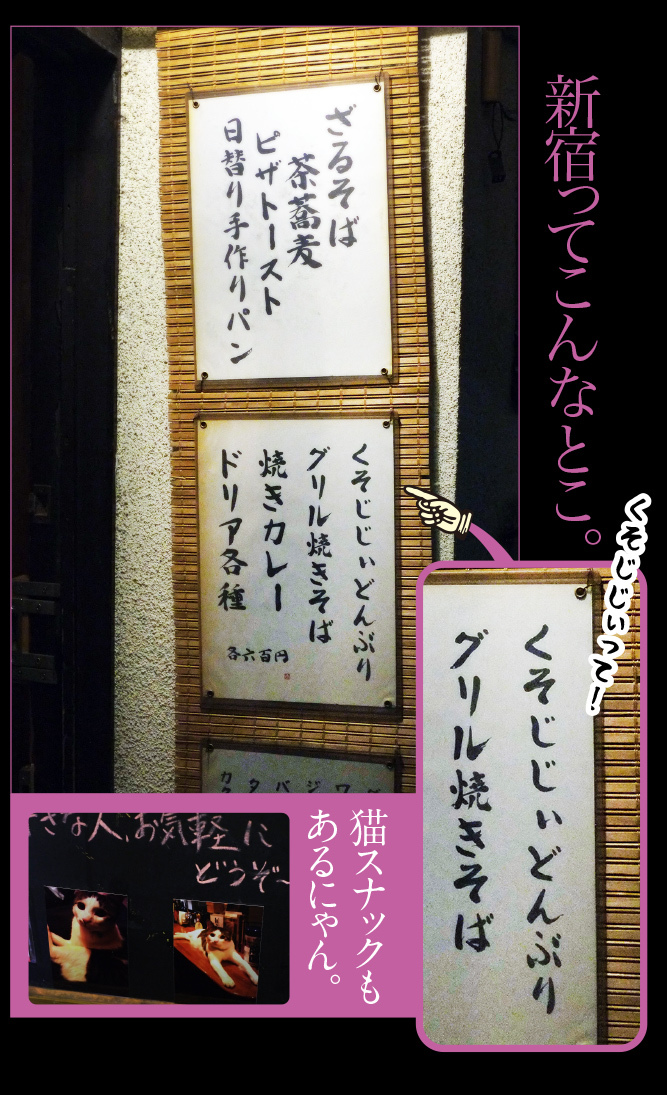 新宿ってこんなとこ。
ざるそば
茶蕎麦
ピザトースト
日替り手作りパン
くそじじぃどんぶり
グリル焼きそば
焼きカレー
ドリア各種
各六百円
くそじじぃって!
くそじじぃどんぶり
グリル焼きそば
猫スナックも
あるにゃん。
きな人、お気軽に
どうぞ~